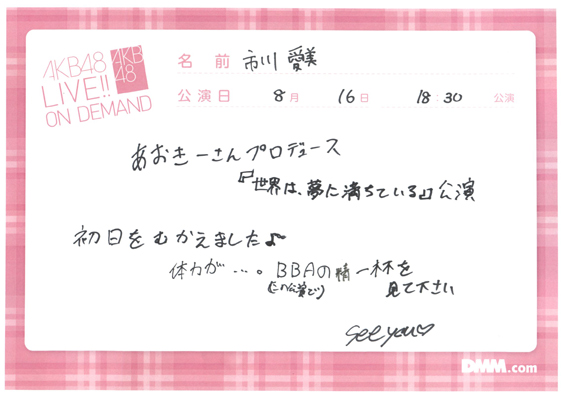 AKB48
LIVE!!
ON DEMAND
AKB
48
名 前 市川 愛美
公演日 8月 16日 18:30 公演
あおきーさんプロデュース
『世界は、夢に満ちている』公演
初日をむかえました♪
体力が…。BBAの精一杯を
(この公演で) 見て下さい
see you♡
DMM.com